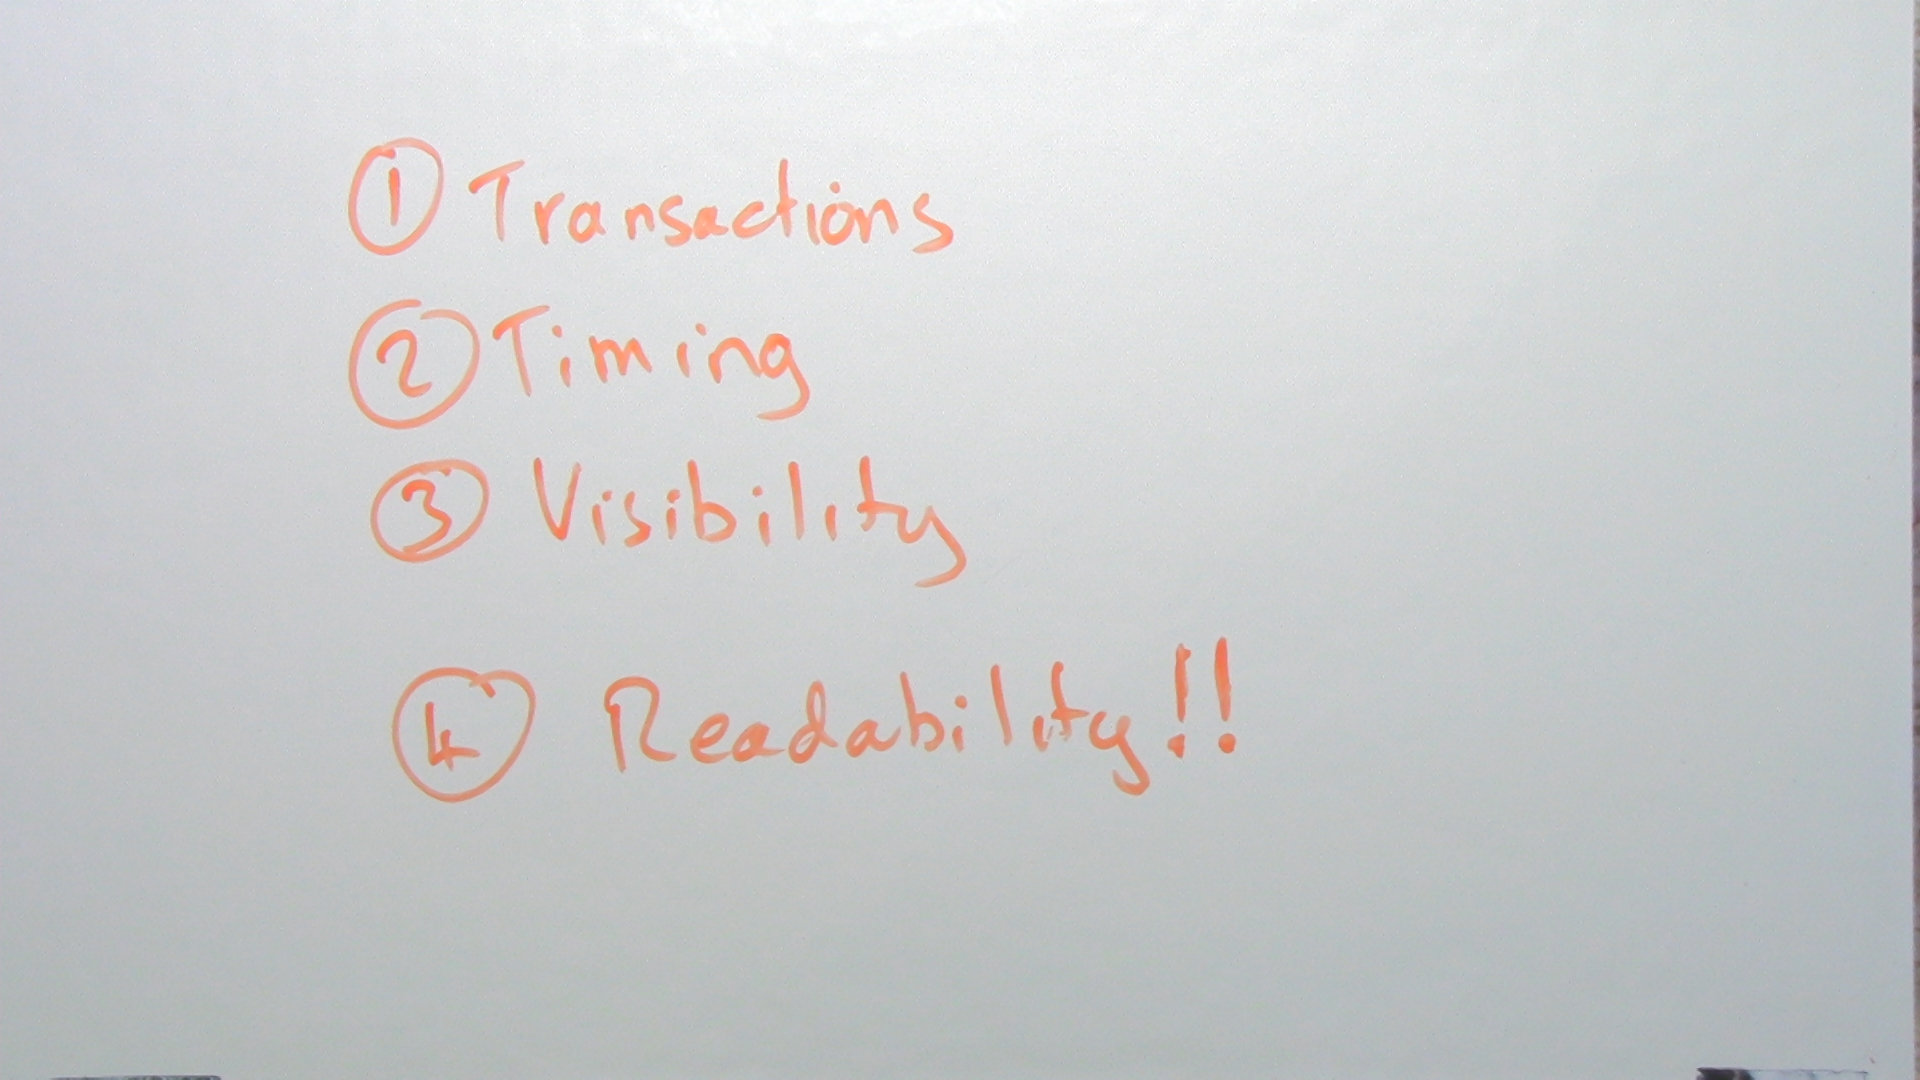 ① Transactions
② Timing
③ Visibility
④ Readability!!